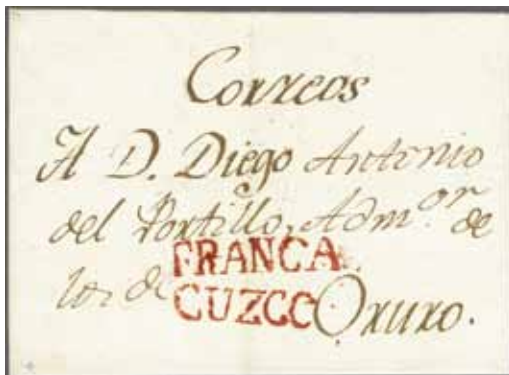 Correos
A D. Diego Antonio
del Portillo, Adm.or de
los de
FRANCA
CUZCO
Oruro.